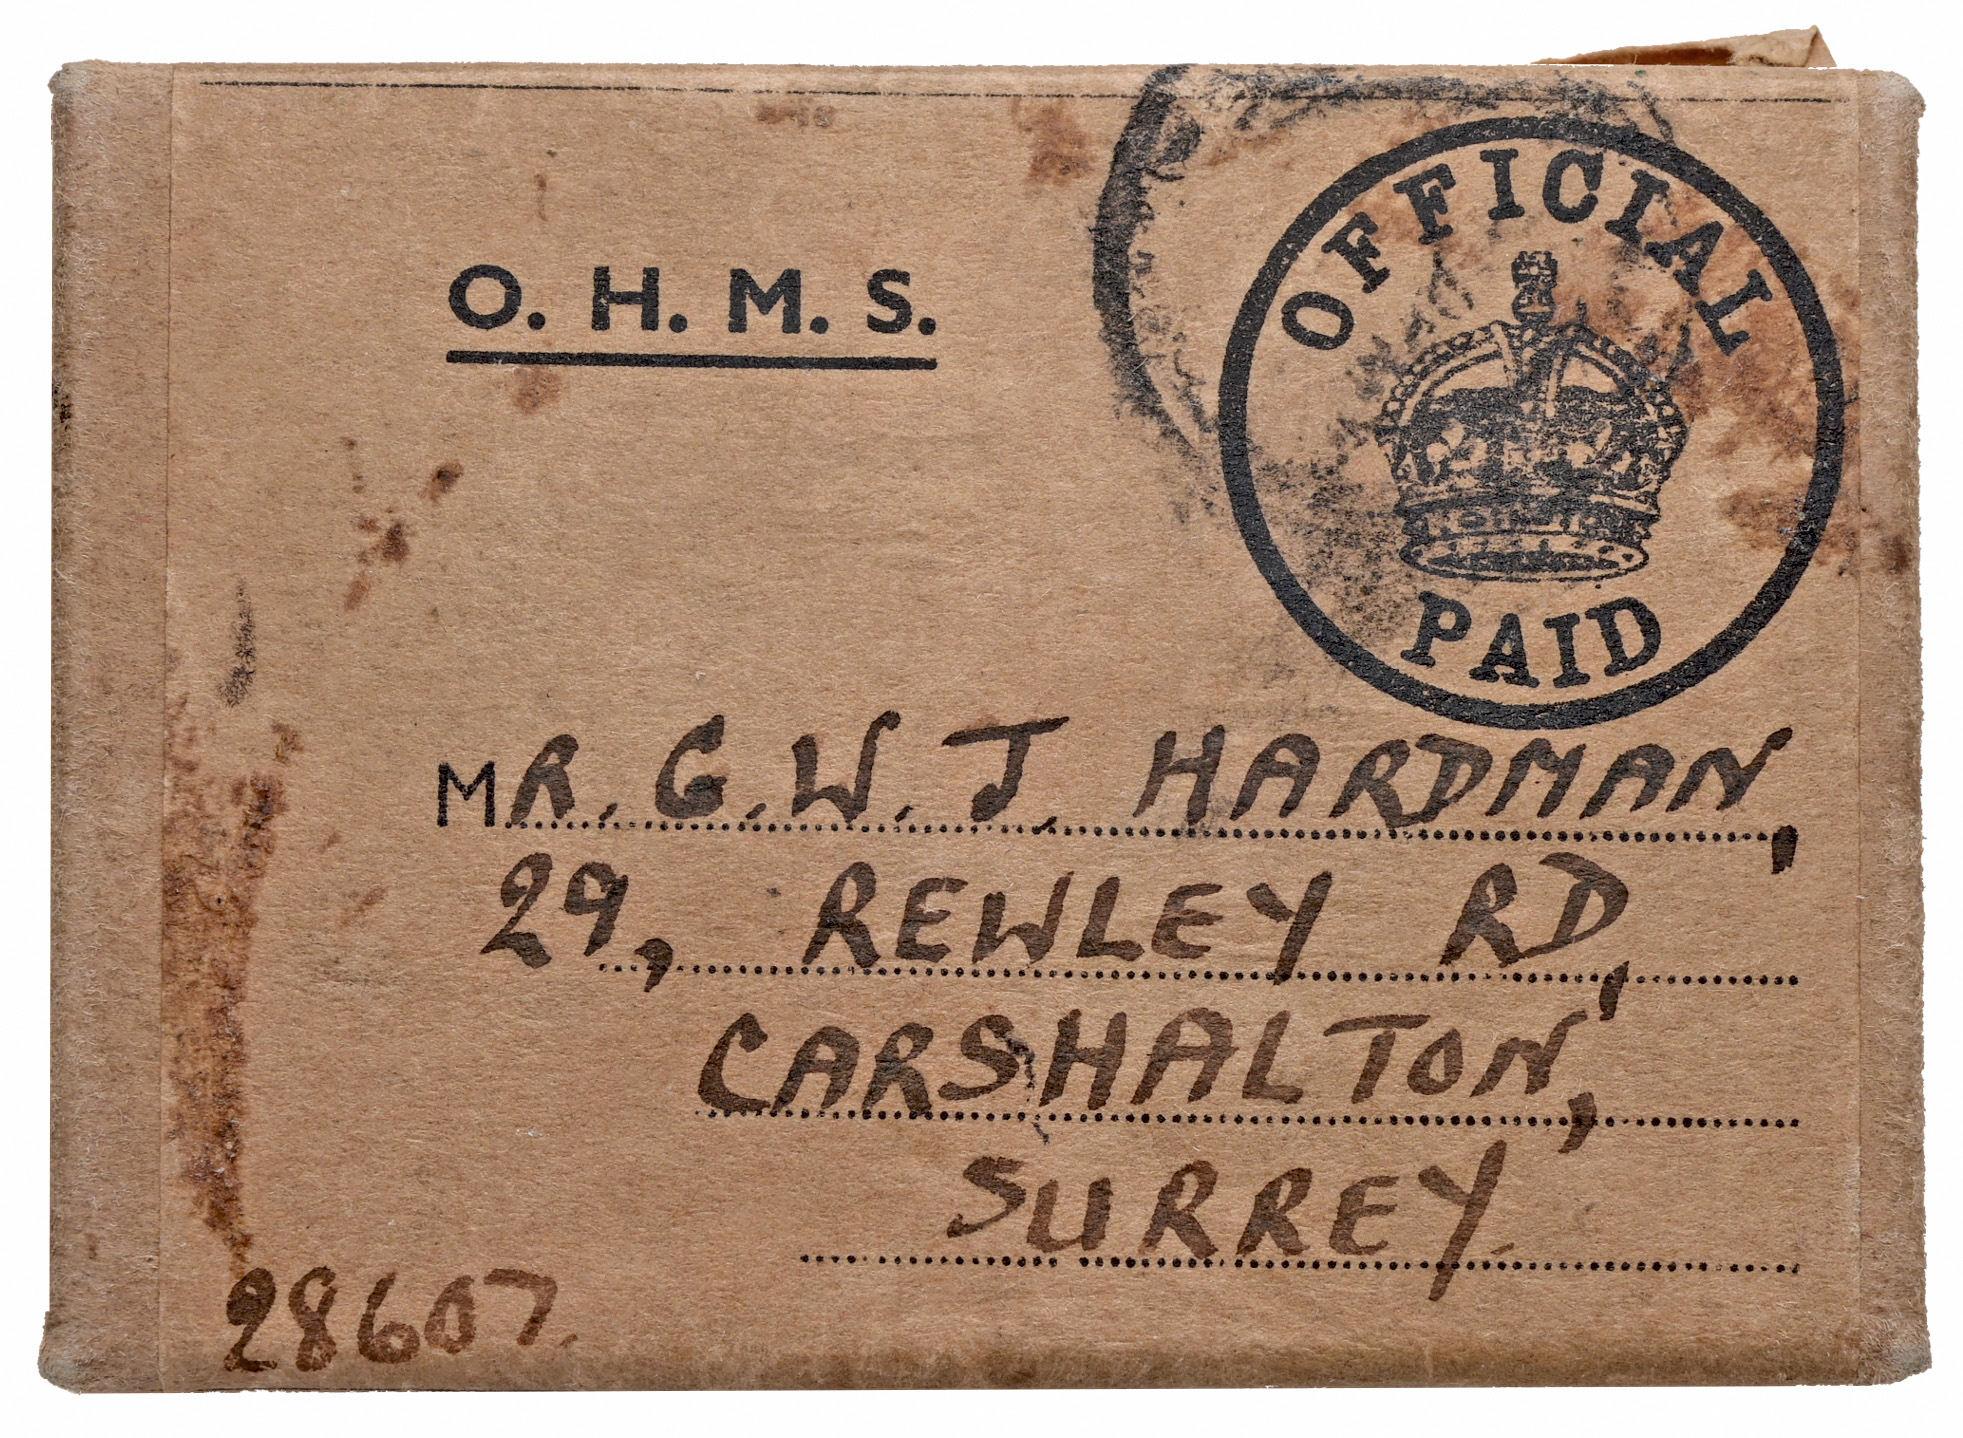 O. H. M. S.
OFFICIAL
PAID
MR. G. W. J. HARDMAN,
29, REWLEY RD,
CARSHALTON,
SURREY.
28607.